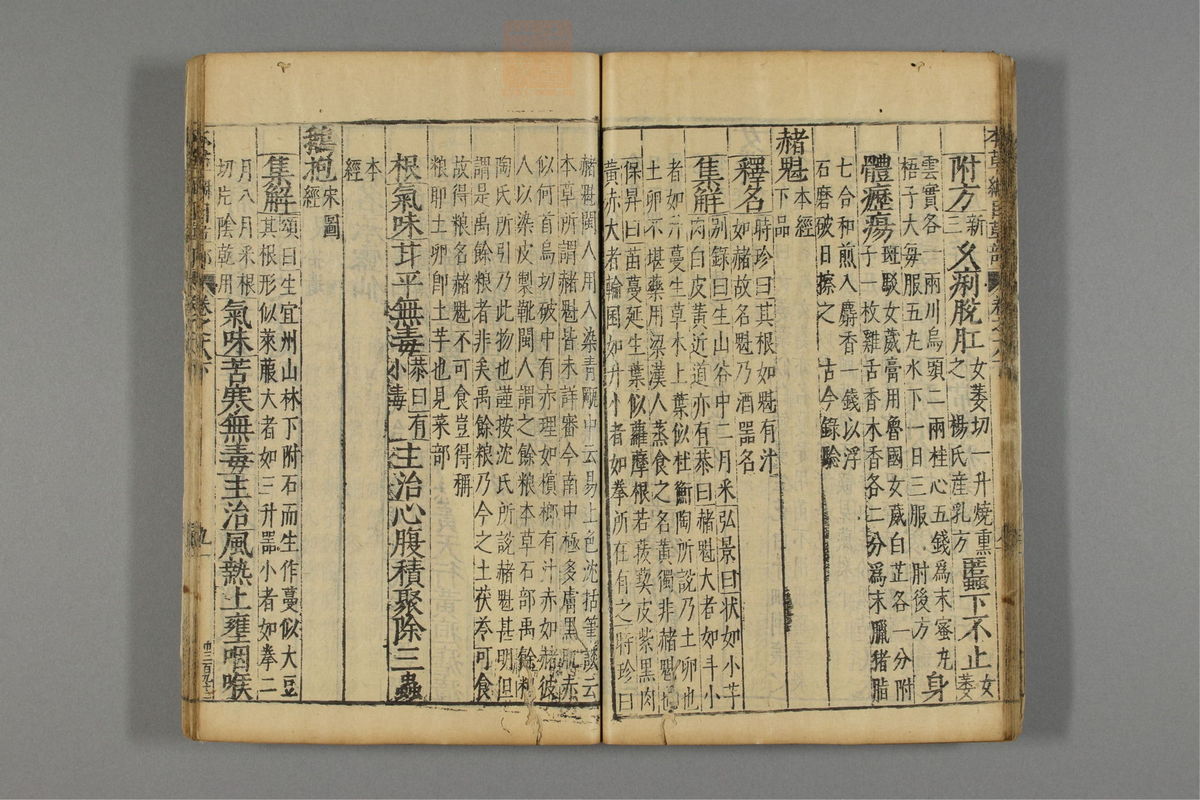 附方 新三 久痢脫肛 女萎切一升燒熏之 楊氏產乳方 䘌下不止 女萎
雲實各一兩川烏頭二兩桂心五錢為末蜜丸
梧子大每服五丸水下一日三服 肘後方 身
體癧瘍 斑駁女葳膏用魯國女葳白芷各一分附
子一枚雞舌香木香各二分為末臘猪脂
七合和煎入麝香一錢以浮
石磨破日擦之 古今錄驗
赭魁 本經下品
釋名 時珍曰其根如魁有汁
如赭故名魁乃酒器名
集解 別錄曰生山谷中二月采弘景曰狀如小芋
肉白皮黃近道亦有恭曰赭魁大者如斗小
者如升蔓生草木上葉似杜衡陶所說乃土卵也
土卵不堪藥用梁漢人蒸食之名黃獨非赭魁也
保昇曰苗蔓延生葉似蘿摩根若菝葜皮紫黑肉
黃赤大者輪囷如升小者如拳所在有之時珍曰
赭魁閩人用入染青缸中云易上色沈括筆談云
本草所謂赭魁皆未詳審今南中極多膚黑肌赤
似何首烏切破中有赤理如檳榔有汁赤如赭彼
人以染皮製靴閩人謂之餘粮本草石部禹餘粮
陶氏所引乃此物也謹按沈氏所說赭魁甚明但
謂是禹餘粮者非矣禹餘粮乃今之土茯苓可食
故得粮名赭魁不可食豈得稱
粮即土卵即土芋也見菜部
根氣味甘平無毒 恭曰有小毒 主治心腹積聚除三蟲
本經
鵝抱 宋圖經
集解 頌曰生宜州山林下附石而生作蔓似大豆
其根形似萊菔大者如三升器小者如拳二
月八月采根
切片陰乾用 氣味苦寒無毒主治風熱上壅咽喉